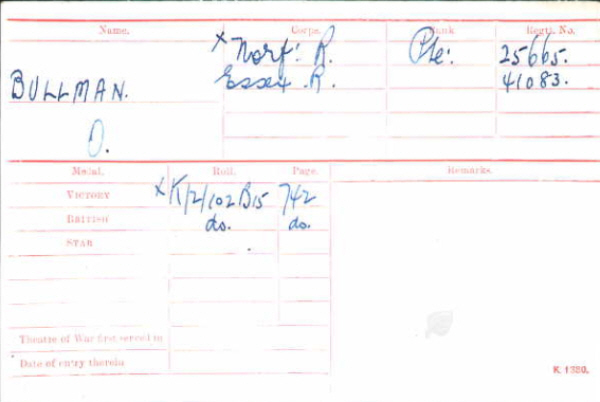 Name. Corps. Rank Regtl. No.
x Norf: R. Pte: 25665.
BULLMAN. Essex .R. 41083.
O.
Medal. Roll. Page. Remarks.
VICTORY x K/2/102B15 742
BRITISH do. do.
STAR
Theatre of War first served in
Date of entry therein
K. 1380.